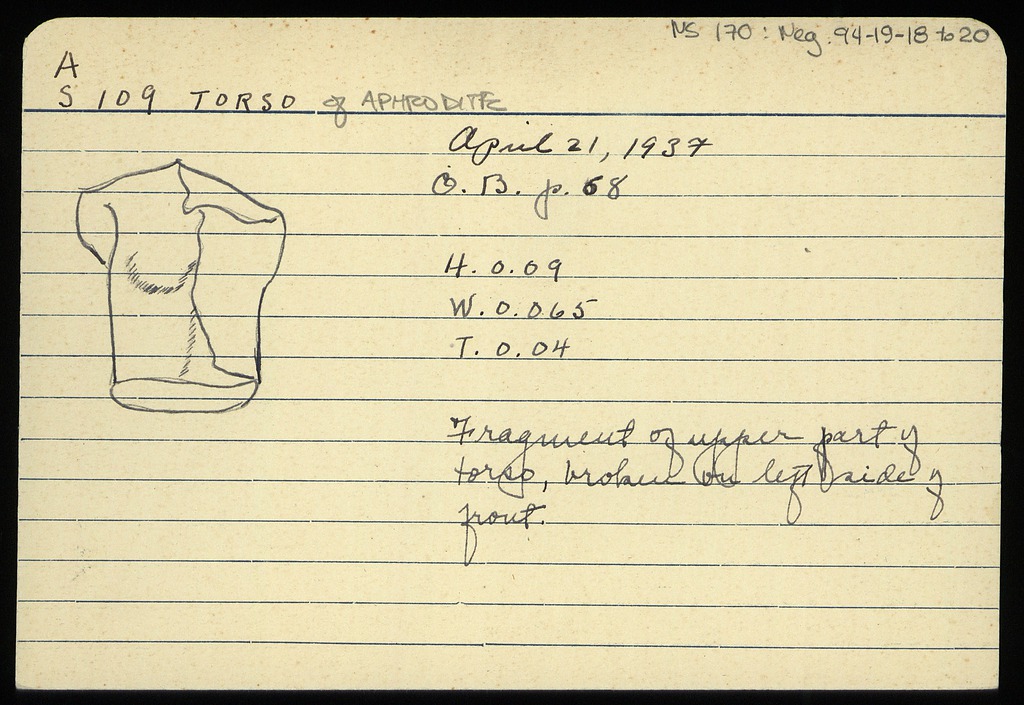 NS 170 : Neg. 94-19-18 to 20
A
S 109 TORSO of APHRODITE
April 21, 1937
O. B. p. 68
H. 0.09
W. 0.065
T. 0.04
Fragment of upper part of
torso, broken on left side of
front.